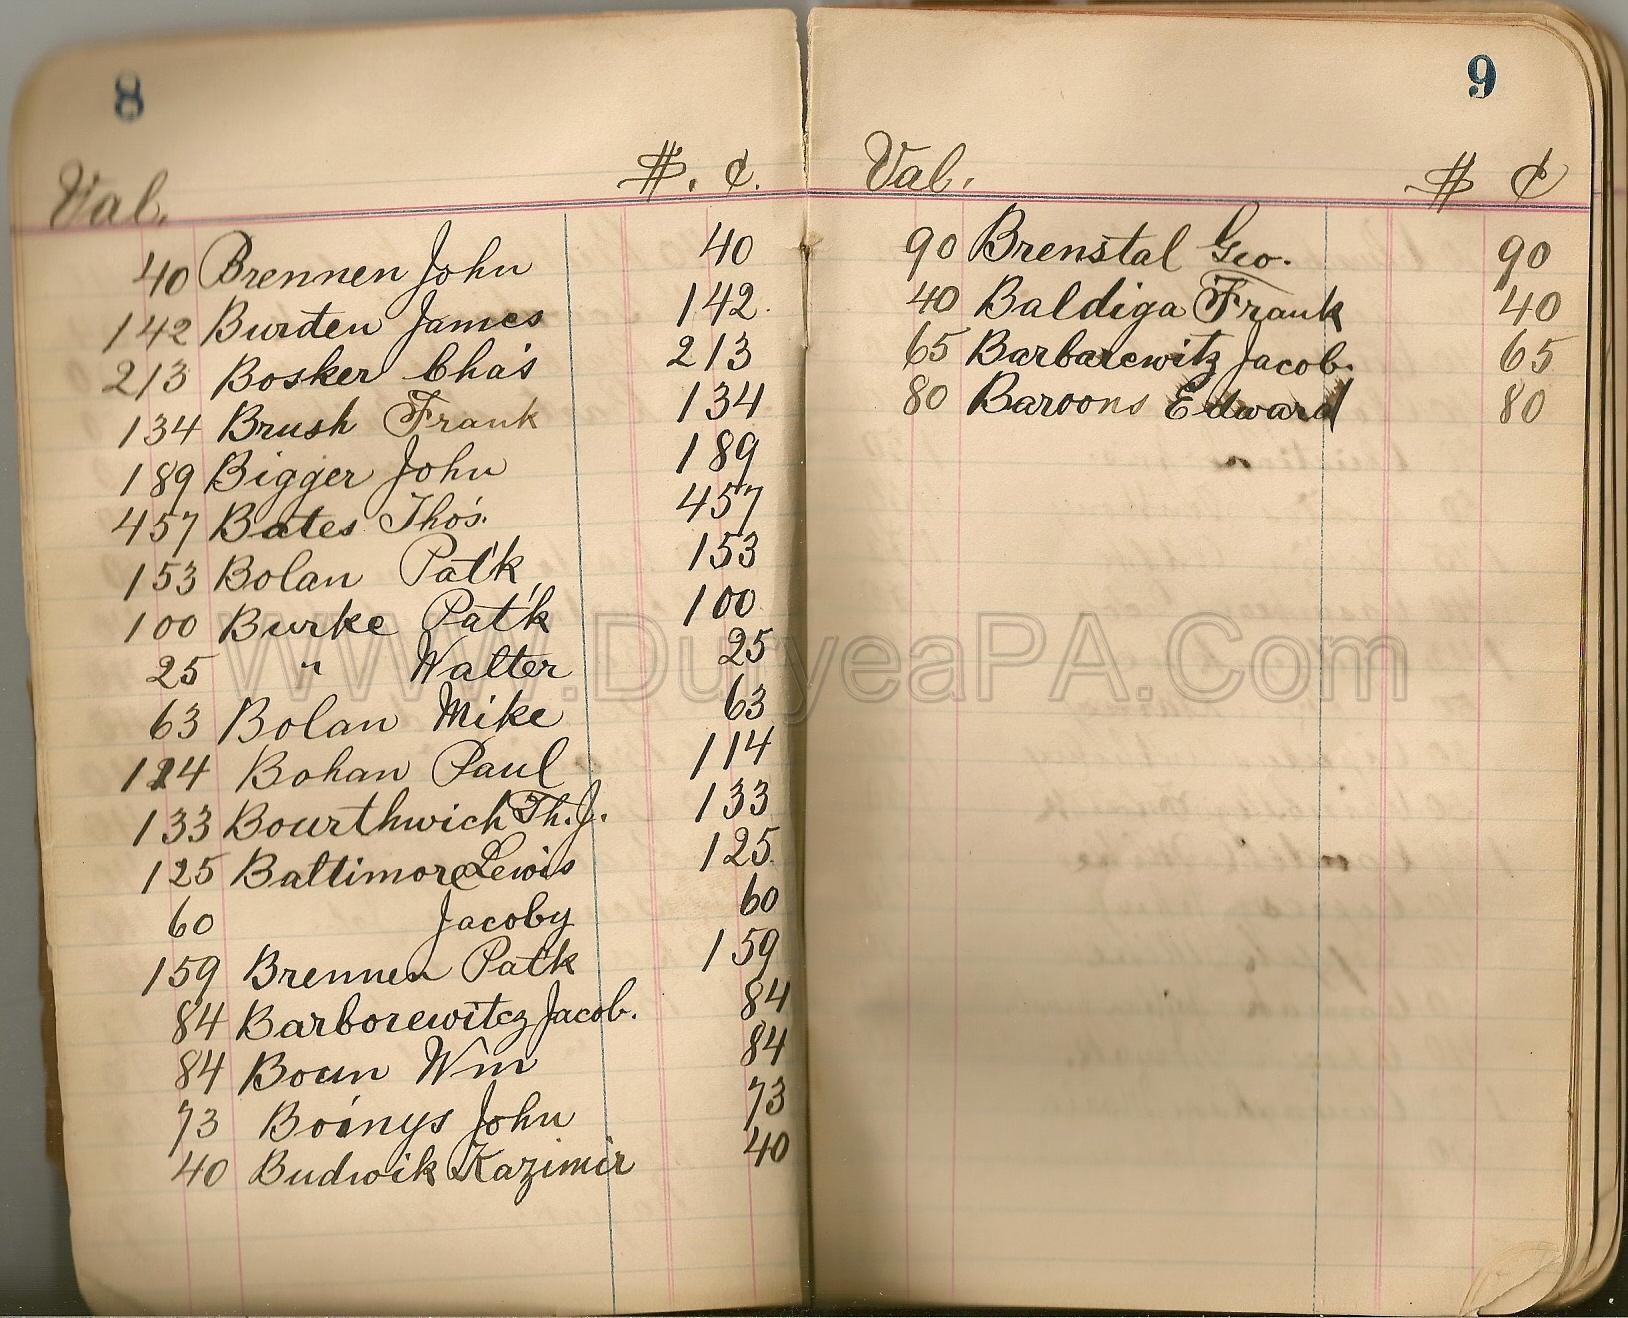 8
Val. $. ¢.
40 Brennen John 40
142 Burden James 142
213 Bosker Cha's 213
134 Brush Frank 134
189 Bigger John 189
457 Bates Tho's. 457
153 Bolan Pat'k 153
100 Burke Pat'k 100
25 " Walter 25
63 Bolan Mike 63
114 Bohan Paul 114
133 Bourthwich Th. J. 133
125 Baltimore Lewis 125
60 Jacoby 60
159 Brennen Pat'k 159
84 Barborewitcz Jacob. 84
84 Boun Wm 84
73 Boinys John 73
40 Budwik Kazimir 40
9
Val. $ ¢
90 Brenstal Geo. 90
40 Baldiga Frank 40
65 Barbarewitz Jacob. 65
80 Baroons Edward 80
www.DuryeaPA.Com